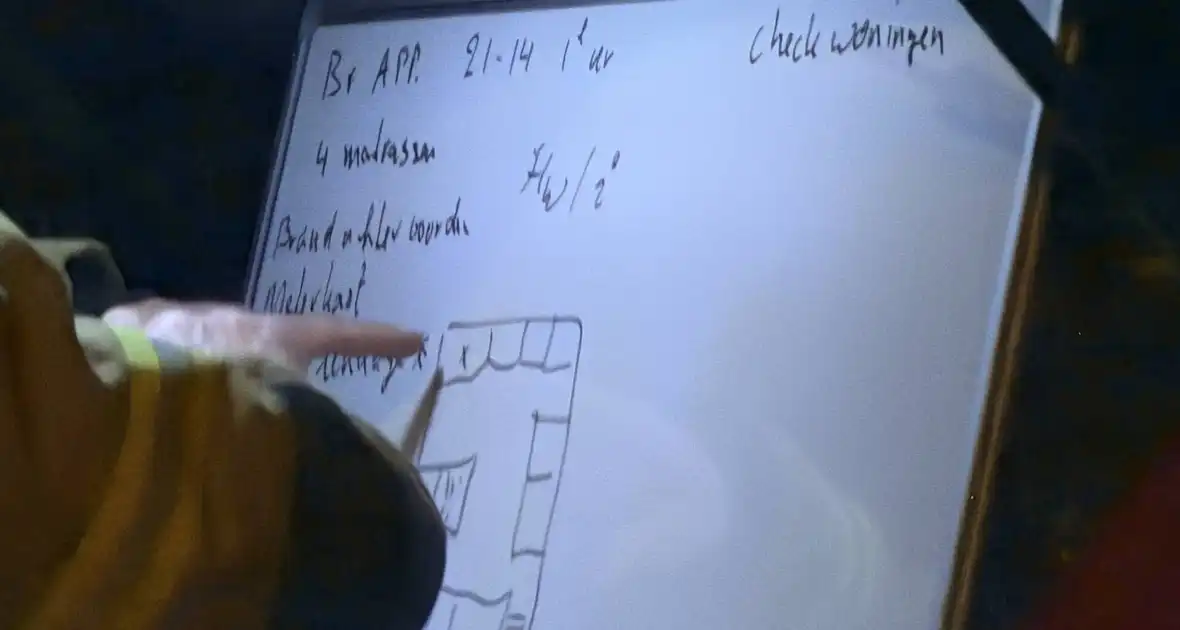 Br APP. 21-14 1e ur
check woningen
4 matrassen
HW/2°
Brand achter voordeur
Meterkast